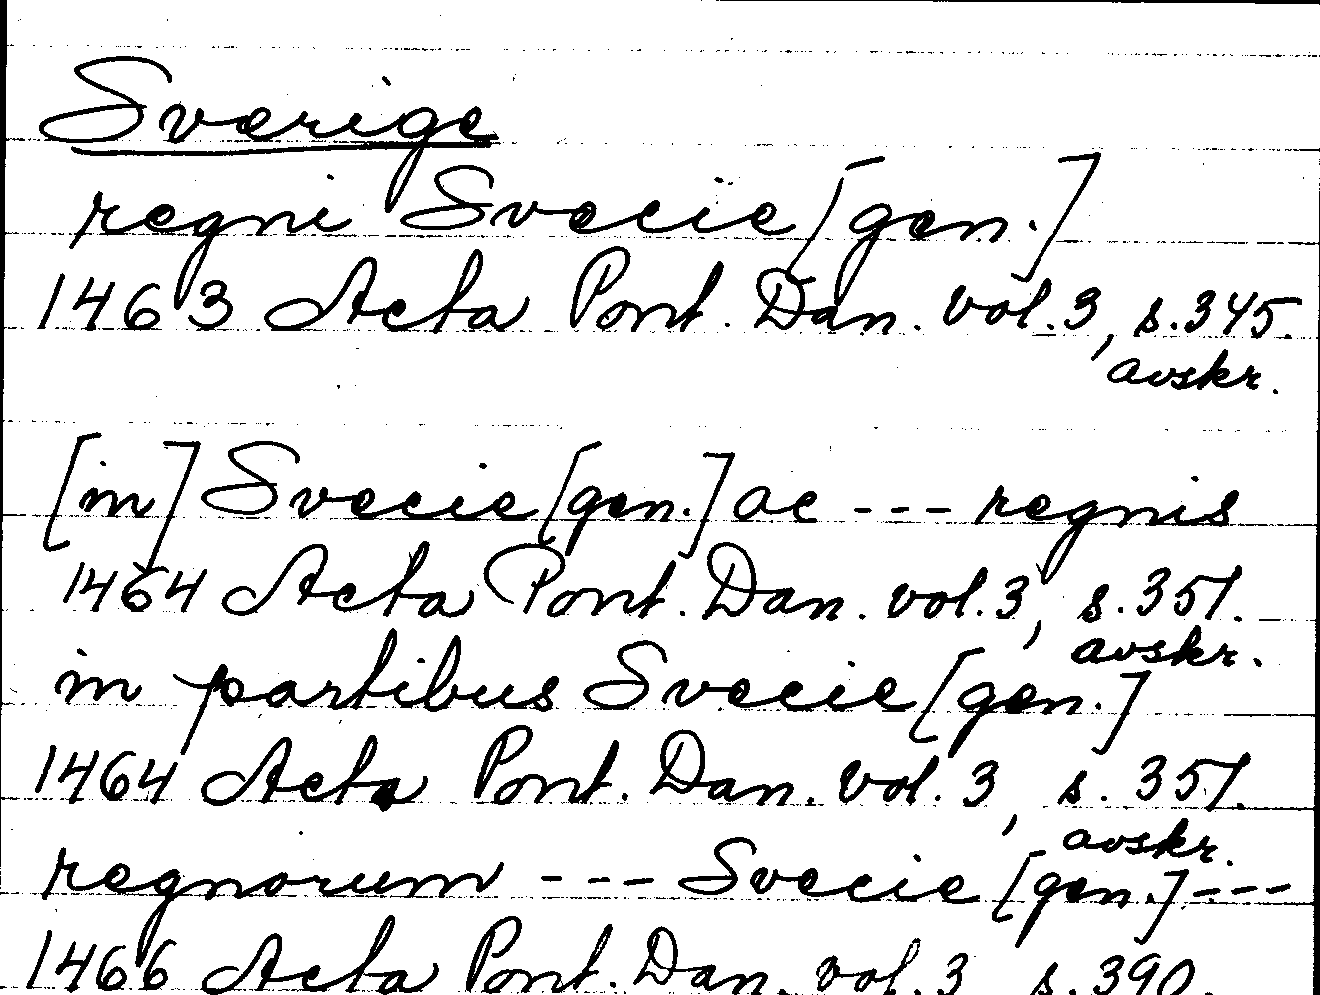 Sverige
regni Svecie [gen.]
1463 Acta Pont. Dan. vol. 3, s. 345.
avskr.
[in] Svecie [gen.] ac --- regnis
1464 Acta Pont. Dan. vol. 3, s. 351.
avskr.
in partibus Svecie [gen.]
1464 Acta Pont. Dan. vol. 3, s. 351.
avskr.
regnorum --- Svecie [gen.] ---
1466 Acta Pont. Dan. vol. 3 s. 390.